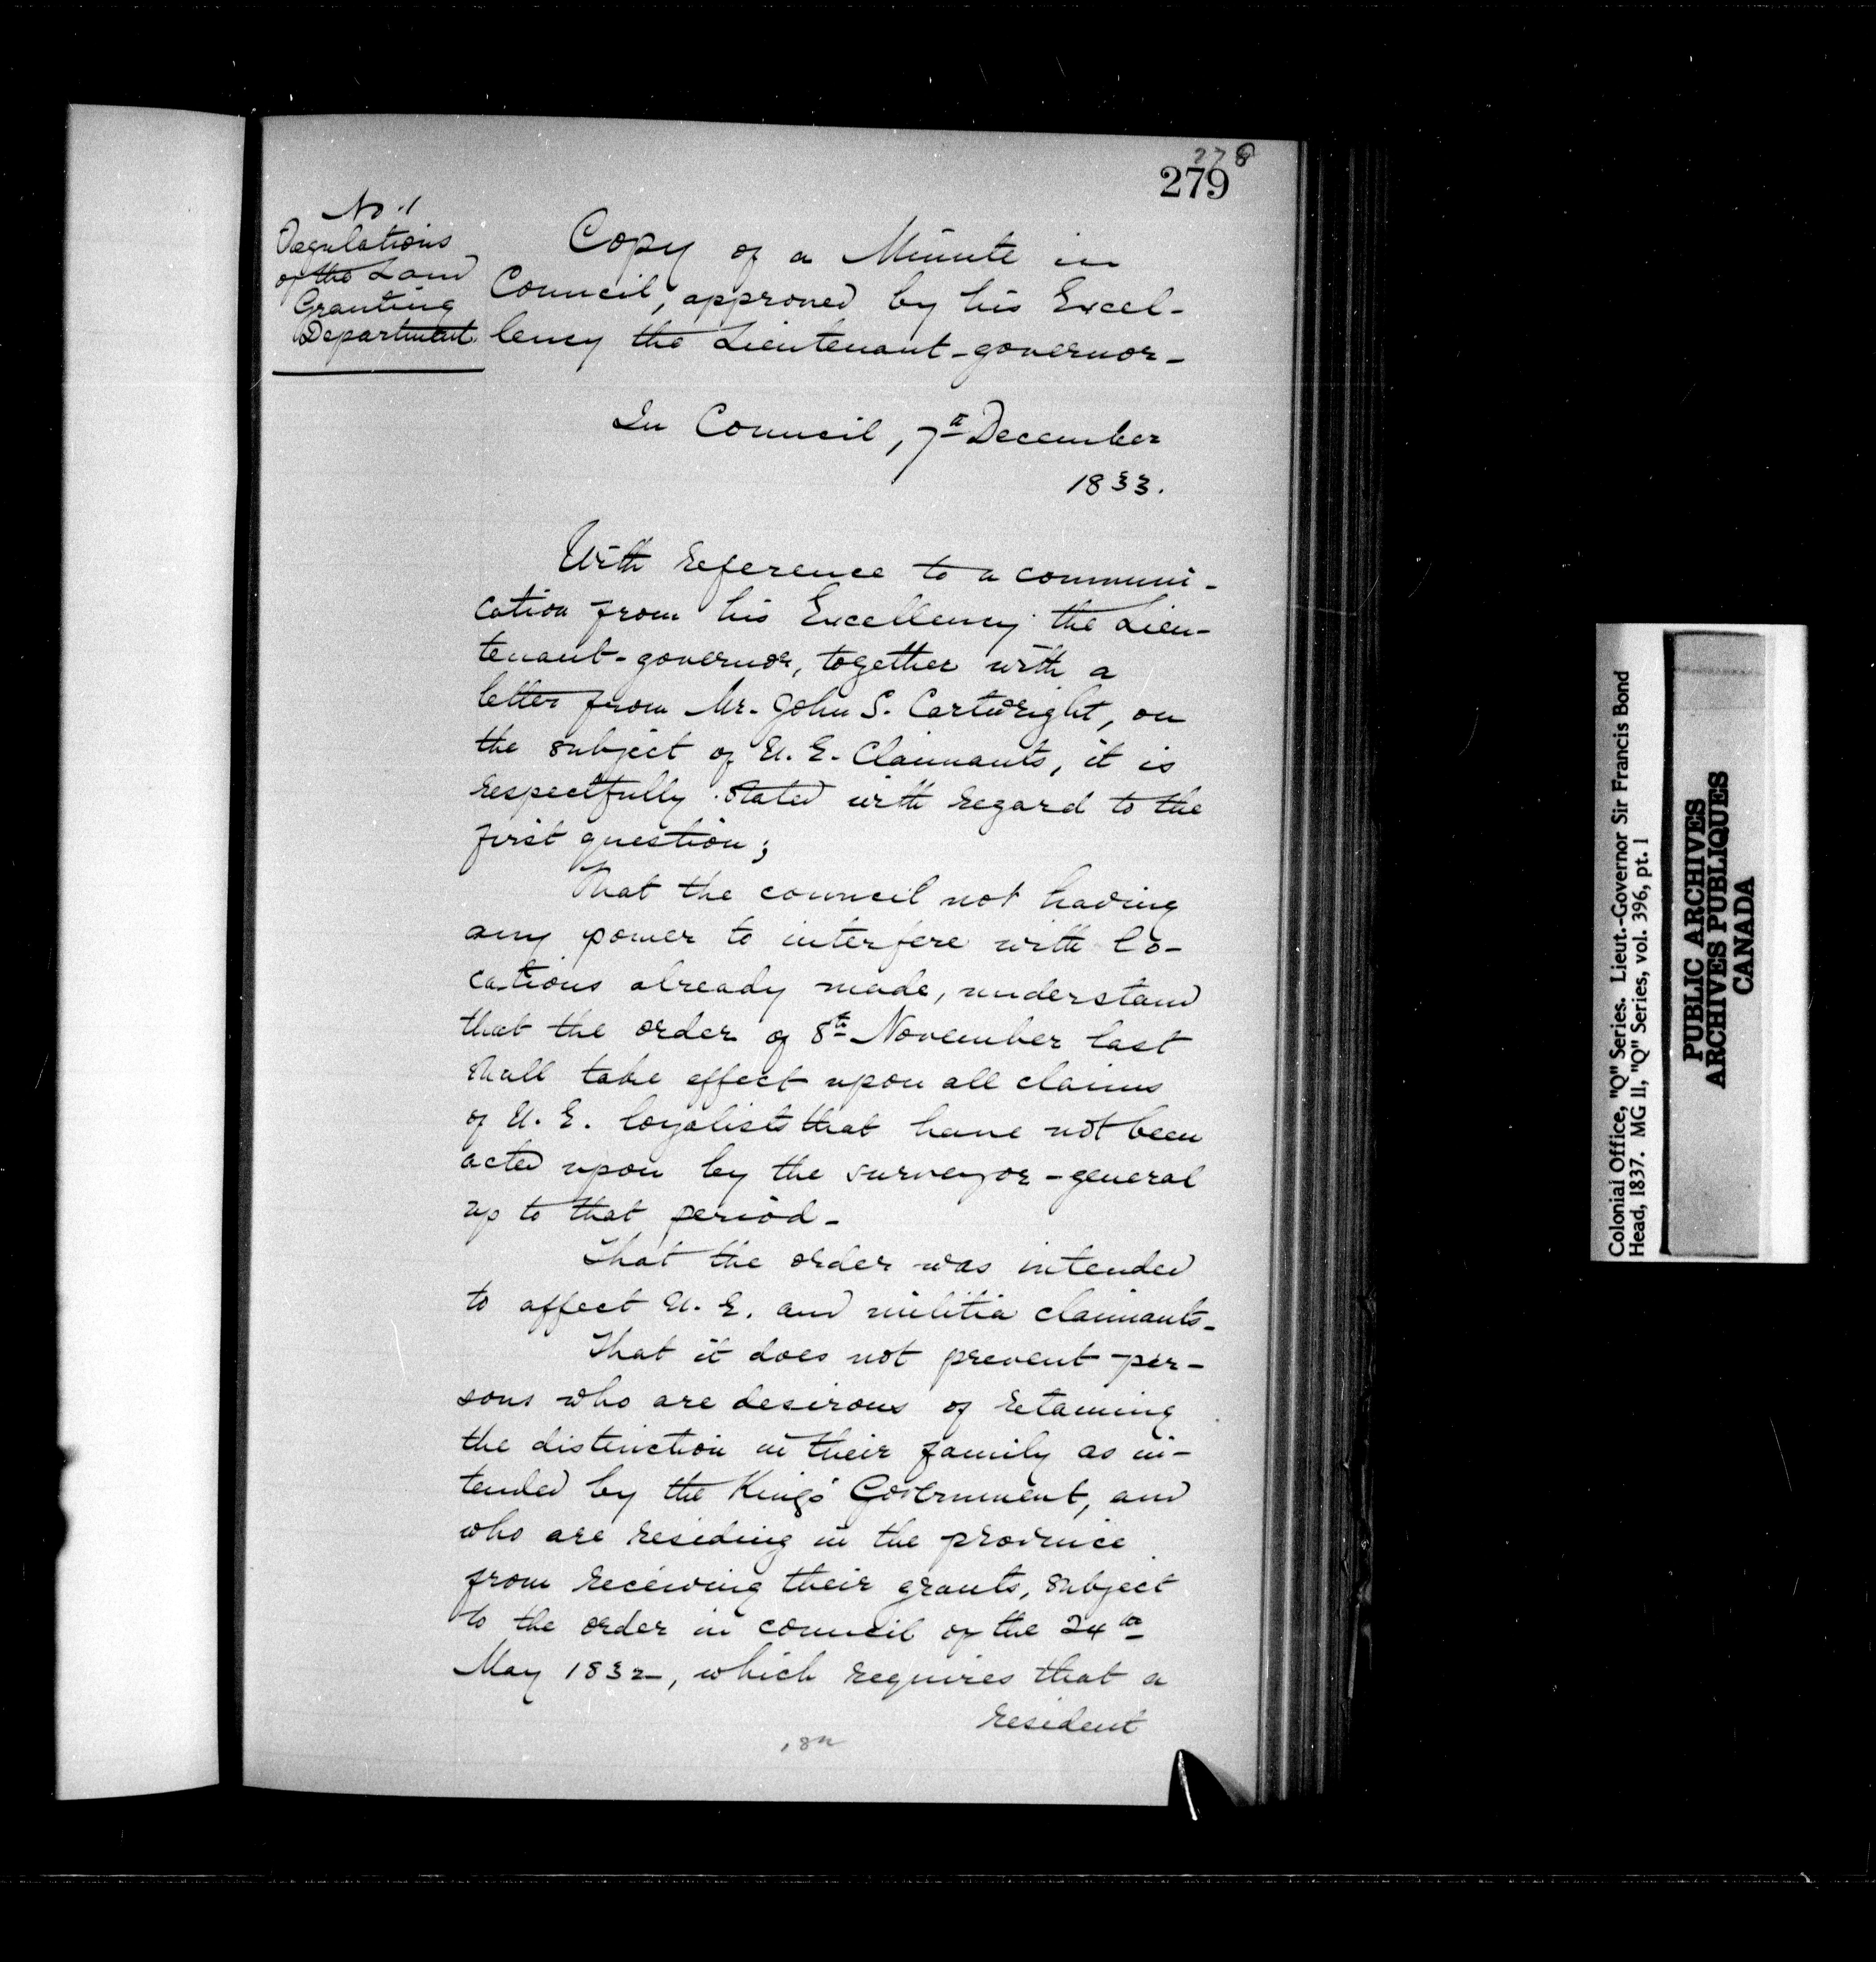 278
279
No. 1
Regulations
of the Land
Granting
Department
Copy of a Minute in
Council, approved by his Excel-
lency the Lieutenant-governor-
In Council, 7th December
1833.
With reference to a communi-
cation from his Excellency the Lieu-
tenant-governor, together with a
letter from Mr. John S. Cartwright, on
the subject of U. E. Claimants, it is
respectfully stated with regard to the
first question;
That the council not having
any power to interfere with lo-
cations already made, understand
that the order of 8th November last
shall take effect upon all claims
of U. E. loyalists that have not been
acted upon by the surveyor-general
up to that period-
That the order was intended
to affect U. E. and militia claimants-
That it does not prevent per-
sons who are desirous of retaining
the distinction in their family as in-
tended by the King's Government, and
who are residing in the province
from receiving their grants, subject
to the order in council of the 24th
May 1832, which requires that a
resident
Colonial Office, "Q" Series. Lieut.-Governor Sir Francis Bond
Head, 1837. MG 11, "Q" Series, vol. 396, pt. 1
PUBLIC ARCHIVES
ARCHIVES PUBLIQUES
CANADA